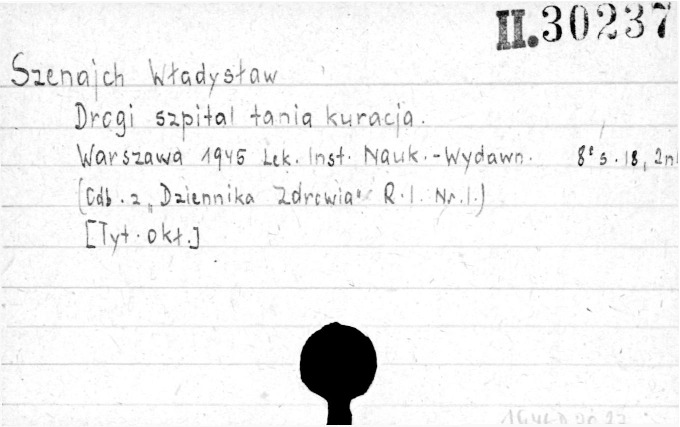 II.30237
Szenajch Władysław
Drogi szpital tania kuracja.
Warszawa 1945 Lek. Inst. Nauk.-Wydawn. 8° s. 18, 2nl
(Odb. z „Dziennika Zdrowia" R. I. Nr. 1.)
[Tyt. okł.]